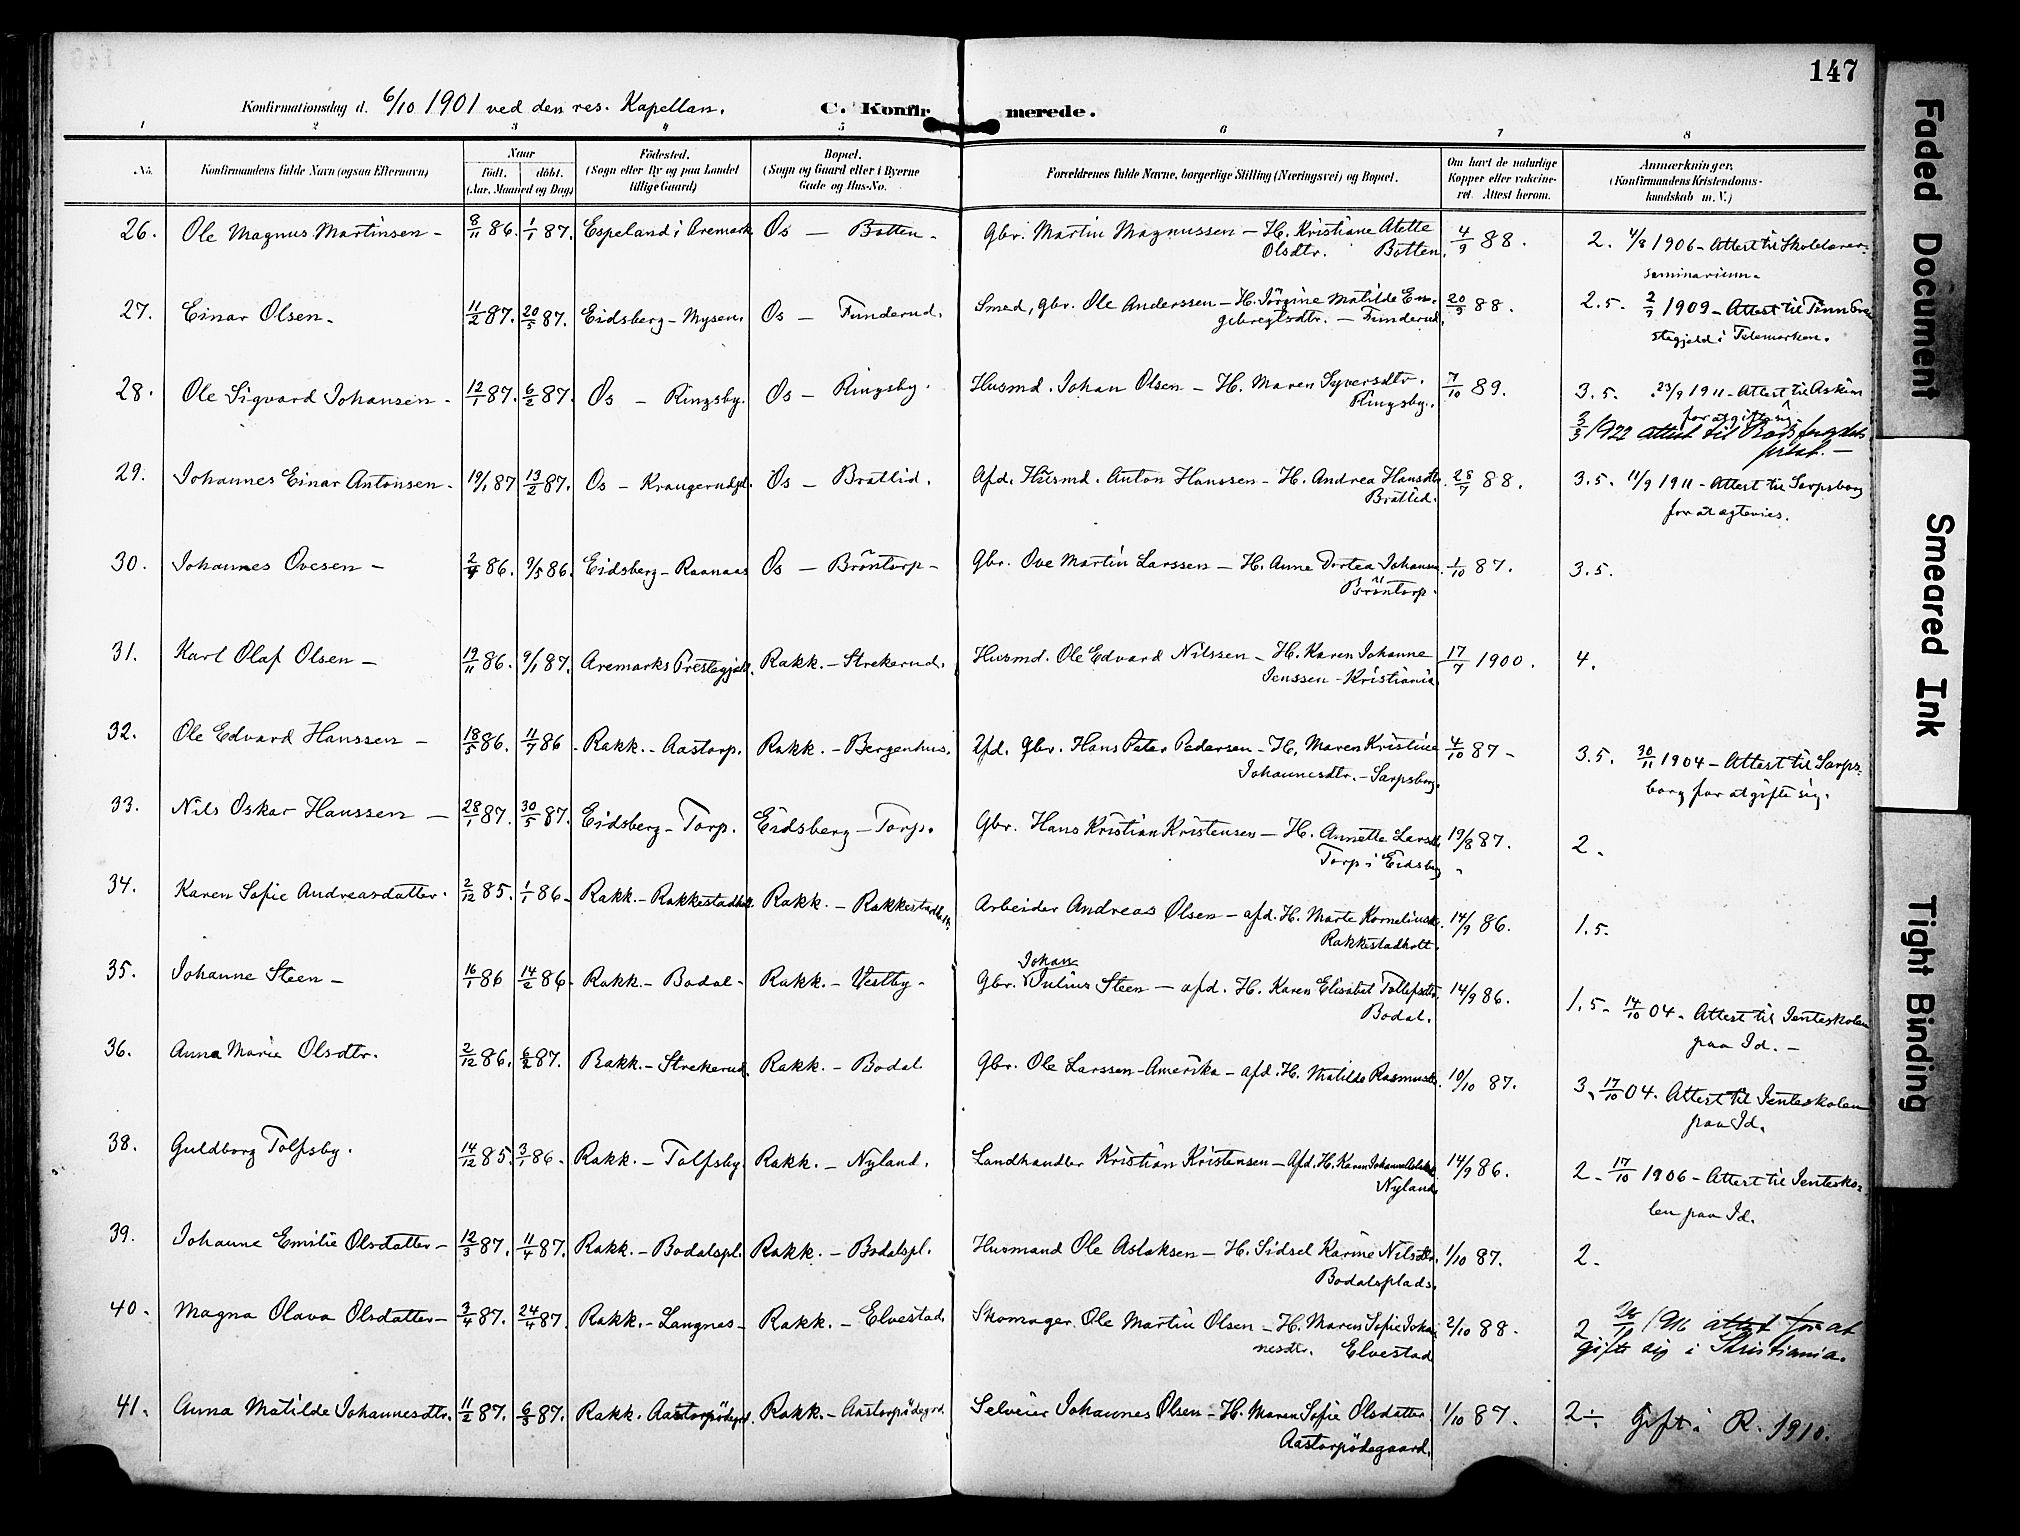 147
Konfirmationsdag d. 6/10 1901 ved den res. Kapellan. C. Konfirmerede.
1 2 3 4 5 6 7 8
No. Konfirmandens fulde Navn (ogsaa Efternavn) Naar født. døbt. (Aar, Maaned og Dag) Fødested. (Sogn eller By og paa Landet tillige Gaard) Bopæl. (Sogn og Gaard eller i Byerne Gade og Hus-No. Forældrenes fulde Navne, borgerlige Stilling (Næringsvei) og Bopæl. Om havt de naturlige Kopper eller vakcineret. Attest herom. Anmærkninger. (Konfirmandens Kristendomskundskab m. V.)
26. Ole Magnus Martinsen - 8/11 86. 1/1 87. Espeland i Aremark Os - Botten. Gbr. Martin Magnussen - H. Kristiane Atette 4/9 88. 2. 4/8 1906 - Attest til Skolelærer-
Olsdtr. Botten. seminarium.
27. Einar Olsen. 11/2 87. 20/5 87. Eidsberg - Mysen. Os - Funderud. Smed, gbr. Ole Anderssen - H. Jørgine Matilde En- 20/9 88. 2.5. 2/7 1909 - Attest til Tinn
gebregtsdtr. - Funderud. stegjeld i Telemarken.
28. Ole Sigvard Johansen. 12/1 87. 6/2 87. Os - Ringsby. Os - Ringsby. Husmd. Johan Olsen - H. Maren Syversdtr. 7/10 89. 3.5. 23/9 1911 - Attest til Askim
Ringsby. for at gifte sig
3/3 1922 attest til
29. Johannes Einar Antonsen. 19/1 87 13/2 87. Os - Krangerudpl. Os - Bratlid. Afd. Husmd. Anton Hanssen - H. Andrea Hansdtr. 28/7 88. 3.5. 11/9 1911 - Attest til Sarpsborg
Bratlid. for at ægtevies.
30. Johannes Ovesen - 2/4 86. 9/5 86. Eidsberg - Raanaas Os - Brøntorp - Gbr. Ove Martin Larssen - H. Anne Dortea Johansd. 1/10 87. 3.5.
Brøntorp.
31. Karl Olaf Olsen - 19/11 86. 9/1 87. Aremarks Prestegjeld. Rakk. - Strekerud. Husmd. Ole Edvard Nilssen - H. Karen Johanne 17/7 1900. 4.
Jenssen - Kristiania.
32. Ole Edvard Hanssen - 18/5 86. 11/7 86 Rakk. - Aastorp. Rakk. - Bergenhus. Afd. Gbr. Hans Peter Pedersen - H. Maren Kristine 4/10 87 - 3.5. 30/11 1904 - Attest til Sarps-
Johannesdtr. - Sarpsborg. borg for at gifte sig.
33. Nils Oskar Hanssen - 28/1 87. 30/5 87. Eidsberg - Torp. Eidsberg - Torp. Gbr. Hans Kristian Kristensen - H. Annette Larsdtr. 19/8 87. 2.
Torp i Eidsberg
34. Karen Sofie Andreasdatter. 2/12 85. 1/1 86. Rakk. - Rakkestadholt Rakk. - Rakkestadholt. Arbeider Andreas Olsen - afd. H. Marte Korneliusd. 14/9 86. 1.5.
Rakkestadholt.
35. Johanne Steen - 16/1 86 14/2 86. Rakk. - Bodal - Rakk. - Vestby - Gbr. Johan Julius Steen - afd. H. Karen Elisabet Tollefsdtr. 14/9 86. 1.5. 14/10 04. Attest til Jenteskolen
Bodal. paa Id. -
36. Anna Marie Olsdtr. 2/12 86. 6/2 87. Rakk. - Strekerud. Rakk. - Bodal Gbr. Ole Larssen - Amerika - afd. H. Matilde Rasmusdtr. 10/10 87. 3. 17/10 04. Attest til Jenteskolen
paa Id.
38. Guldborg Tolfsby. 14/12 85. 3/1 86. Rakk. - Tolfsby. Rakk. - Nyland. Landhandler Kristian Kristensen - Afd. H. Karen Johanne 14/9 86. 2. 17/10 1906 - Attest til Jentesko-
Nyland. len paa Id.
39. Johanne Emilie Olsdatter - 12/3 87. 11/4 87. Rakk. - Bodalspl. Rakk. - Bodalspl. Husmand Ole Aslaksen - H. Sidsel Karine Nilsdtr. 1/10 87. 2.
Bodalsplads.
40. Magna Olava Olsdatter - 3/4 87. 24/4 87. Rakk. - Langnes - Rakk. - Elvestad. Skomager Ole Martin Olsen - H. Maren Sofie Johan- 2/10 88. 2 1916 attest for at
nesdtr. Elvestad gifte sig i Kristiania.
41. Anna Matilde Johannesdtr. 11/2 87. 6/3 87. Rakk. Aastorpødegrd. Rakk. - Aastorpødegrd. Selveier Johannes Olsen - H. Maren Sofie Olsdatter 1/10 87. 2÷ Gift i R. 1910.
Aastorpødegaard.
Faded Document
Smeared Ink
Tight Binding